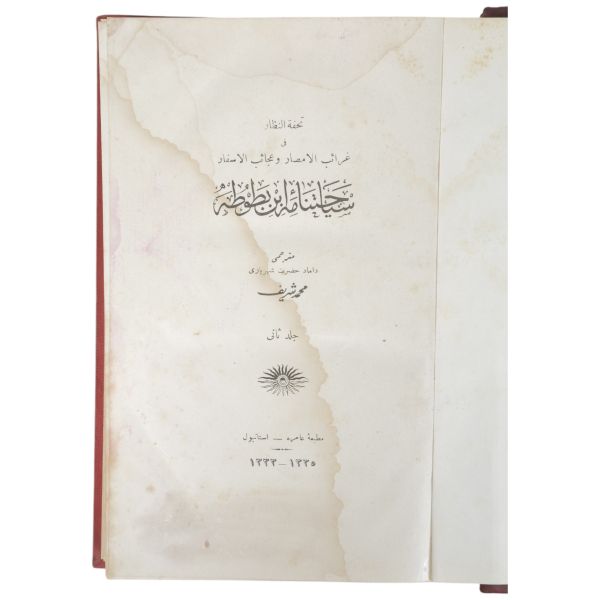 تحفة النظار
فى
غرائب الامصار وعجائب الاسفار
سياحتنامۀ ابن بطوطه
مترجمى
داماد حضرت شهريارى
محمد شريف
جلد ثانى
مطبعۀ عامره — استانبول
١٣٣٥ — ١٣٣٣